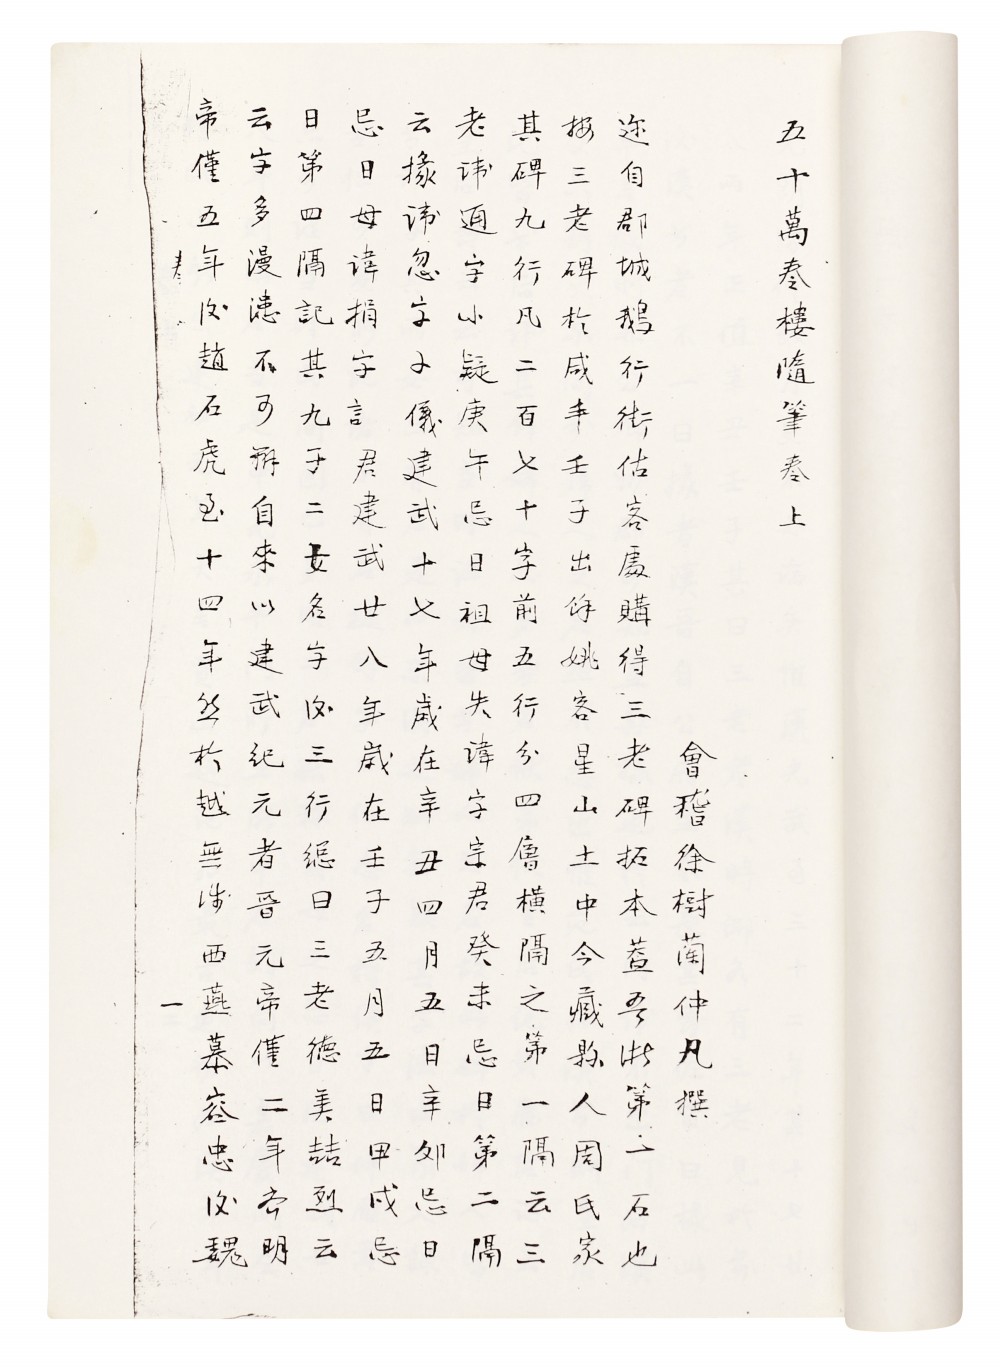 五十萬卷樓隨筆卷上
會稽徐樹蘭仲凡撰
迩自郡城鵝行街估客處購得三老碑拓本蓋吾浙第一石也
按三老碑於咸丰壬子出餘姚客星山土中今藏縣人周氏家
其碑九行凡二百七十字前五行分四層橫隔之第一隔云三
老諱通字小疑庚午忌日祖母失諱字宗君癸未忌日第二隔
云掾諱忽字子儀建武十七年歲在辛丑四月五日辛卯忌日
忌日母諱捐字言君建武廿八年歲在壬子五月五日甲戌忌
日第四隔記其九子二女名字後三行總曰三老德美喆烈云
云字多漫漶不可辨自來以建武紀元者晉元帝僅二年齊明
帝僅五年後趙石虎至十四年然於越無涉西燕慕容忠後魏
一